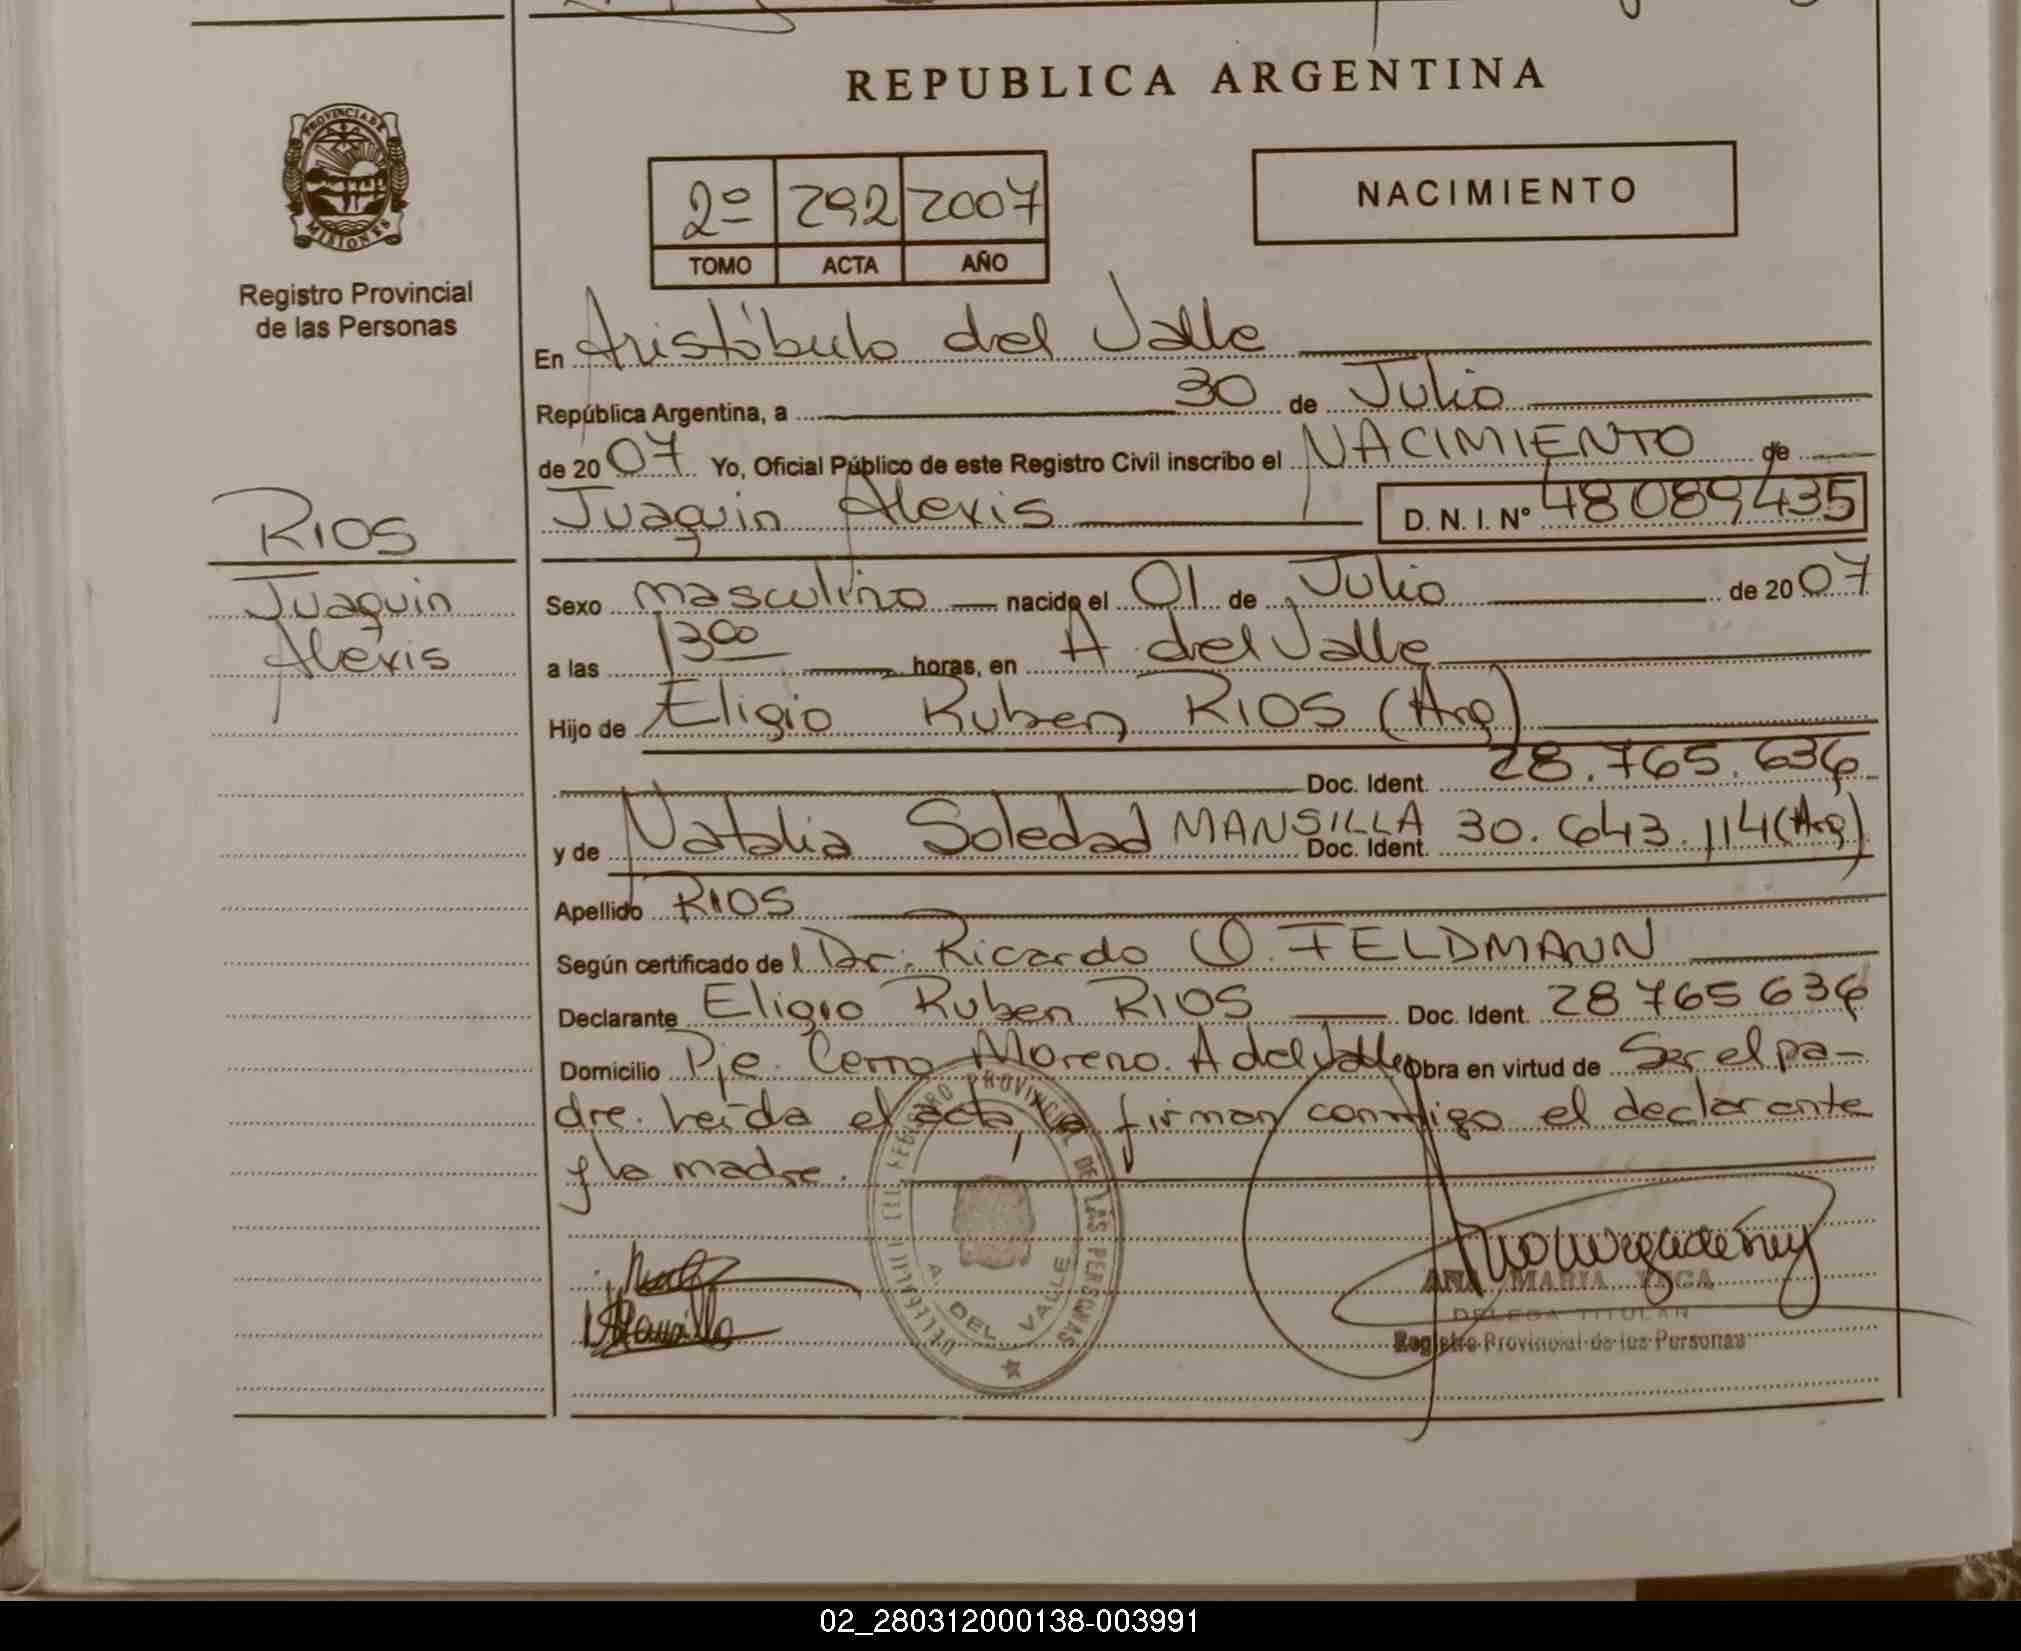 REPUBLICA ARGENTINA
PROVINCIA DE
MISIONES
Registro Provincial
de las Personas
2º 292 2007
TOMO ACTA AÑO
NACIMIENTO
En Aristóbulo del Valle
República Argentina, a 30 de Julio
de 2007 Yo, Oficial Público de este Registro Civil inscribo el NACIMIENTO de
Juaquin Alexis D. N. I. Nº 48089435
RIOS
Juaquin
Alexis
Sexo masculino nacido el 01 de Julio de 2007
a las 13:00 horas, en A. del Valle
Hijo de Eligio Ruben RIOS (Arg)
Doc. Ident. 28.765.636
y de Natalia Soledad MANSILLA Doc. Ident. 30.643.114 (Arg)
Apellido RIOS
Según certificado del Dr. Ricardo O. FELDMANN
Declarante Eligio Ruben RIOS Doc. Ident. 28 765 636
Domicilio Pje. Cerro Moreno. A del Valle Obra en virtud de Ser el pa-
dre. Leída el acta, la firman conmigo el declarante
y la madre.
REGISTRO PROVINCIAL DE LAS PERSONAS
A. DEL VALLE
ANA MARIA
TITULAR
Registro Provincial de las Personas
02_280312000138-003991